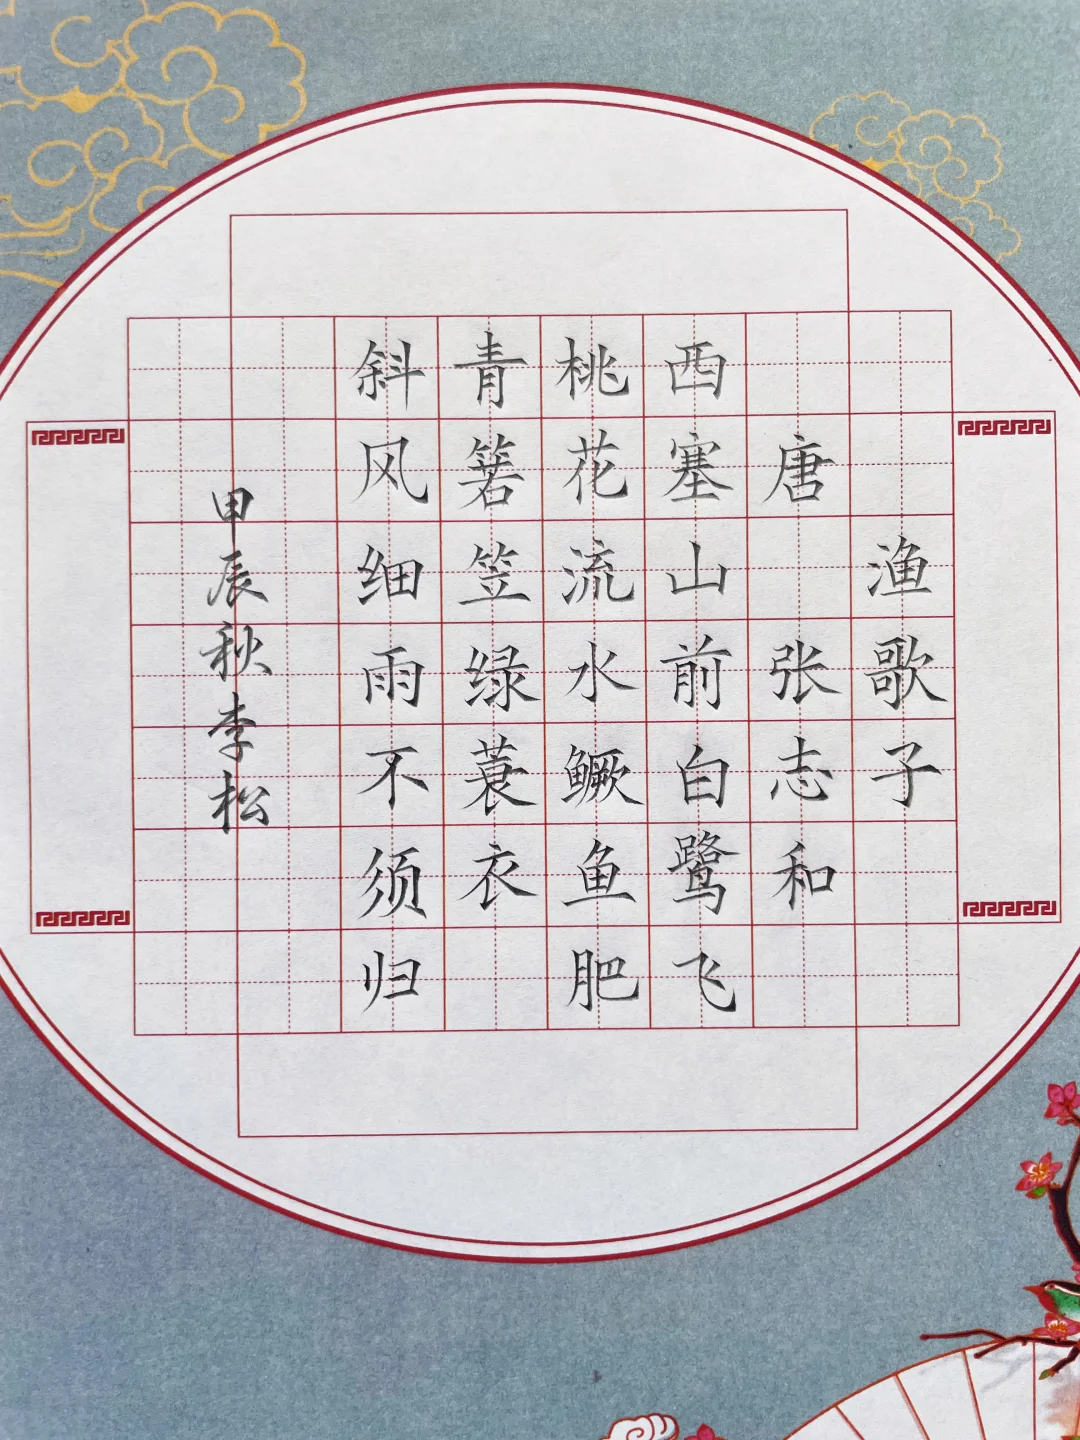 渔歌子
唐 张志和
西塞山前白鹭飞
桃花流水鳜鱼肥
青箬笠绿蓑衣
斜风细雨不须归
甲辰秋李松